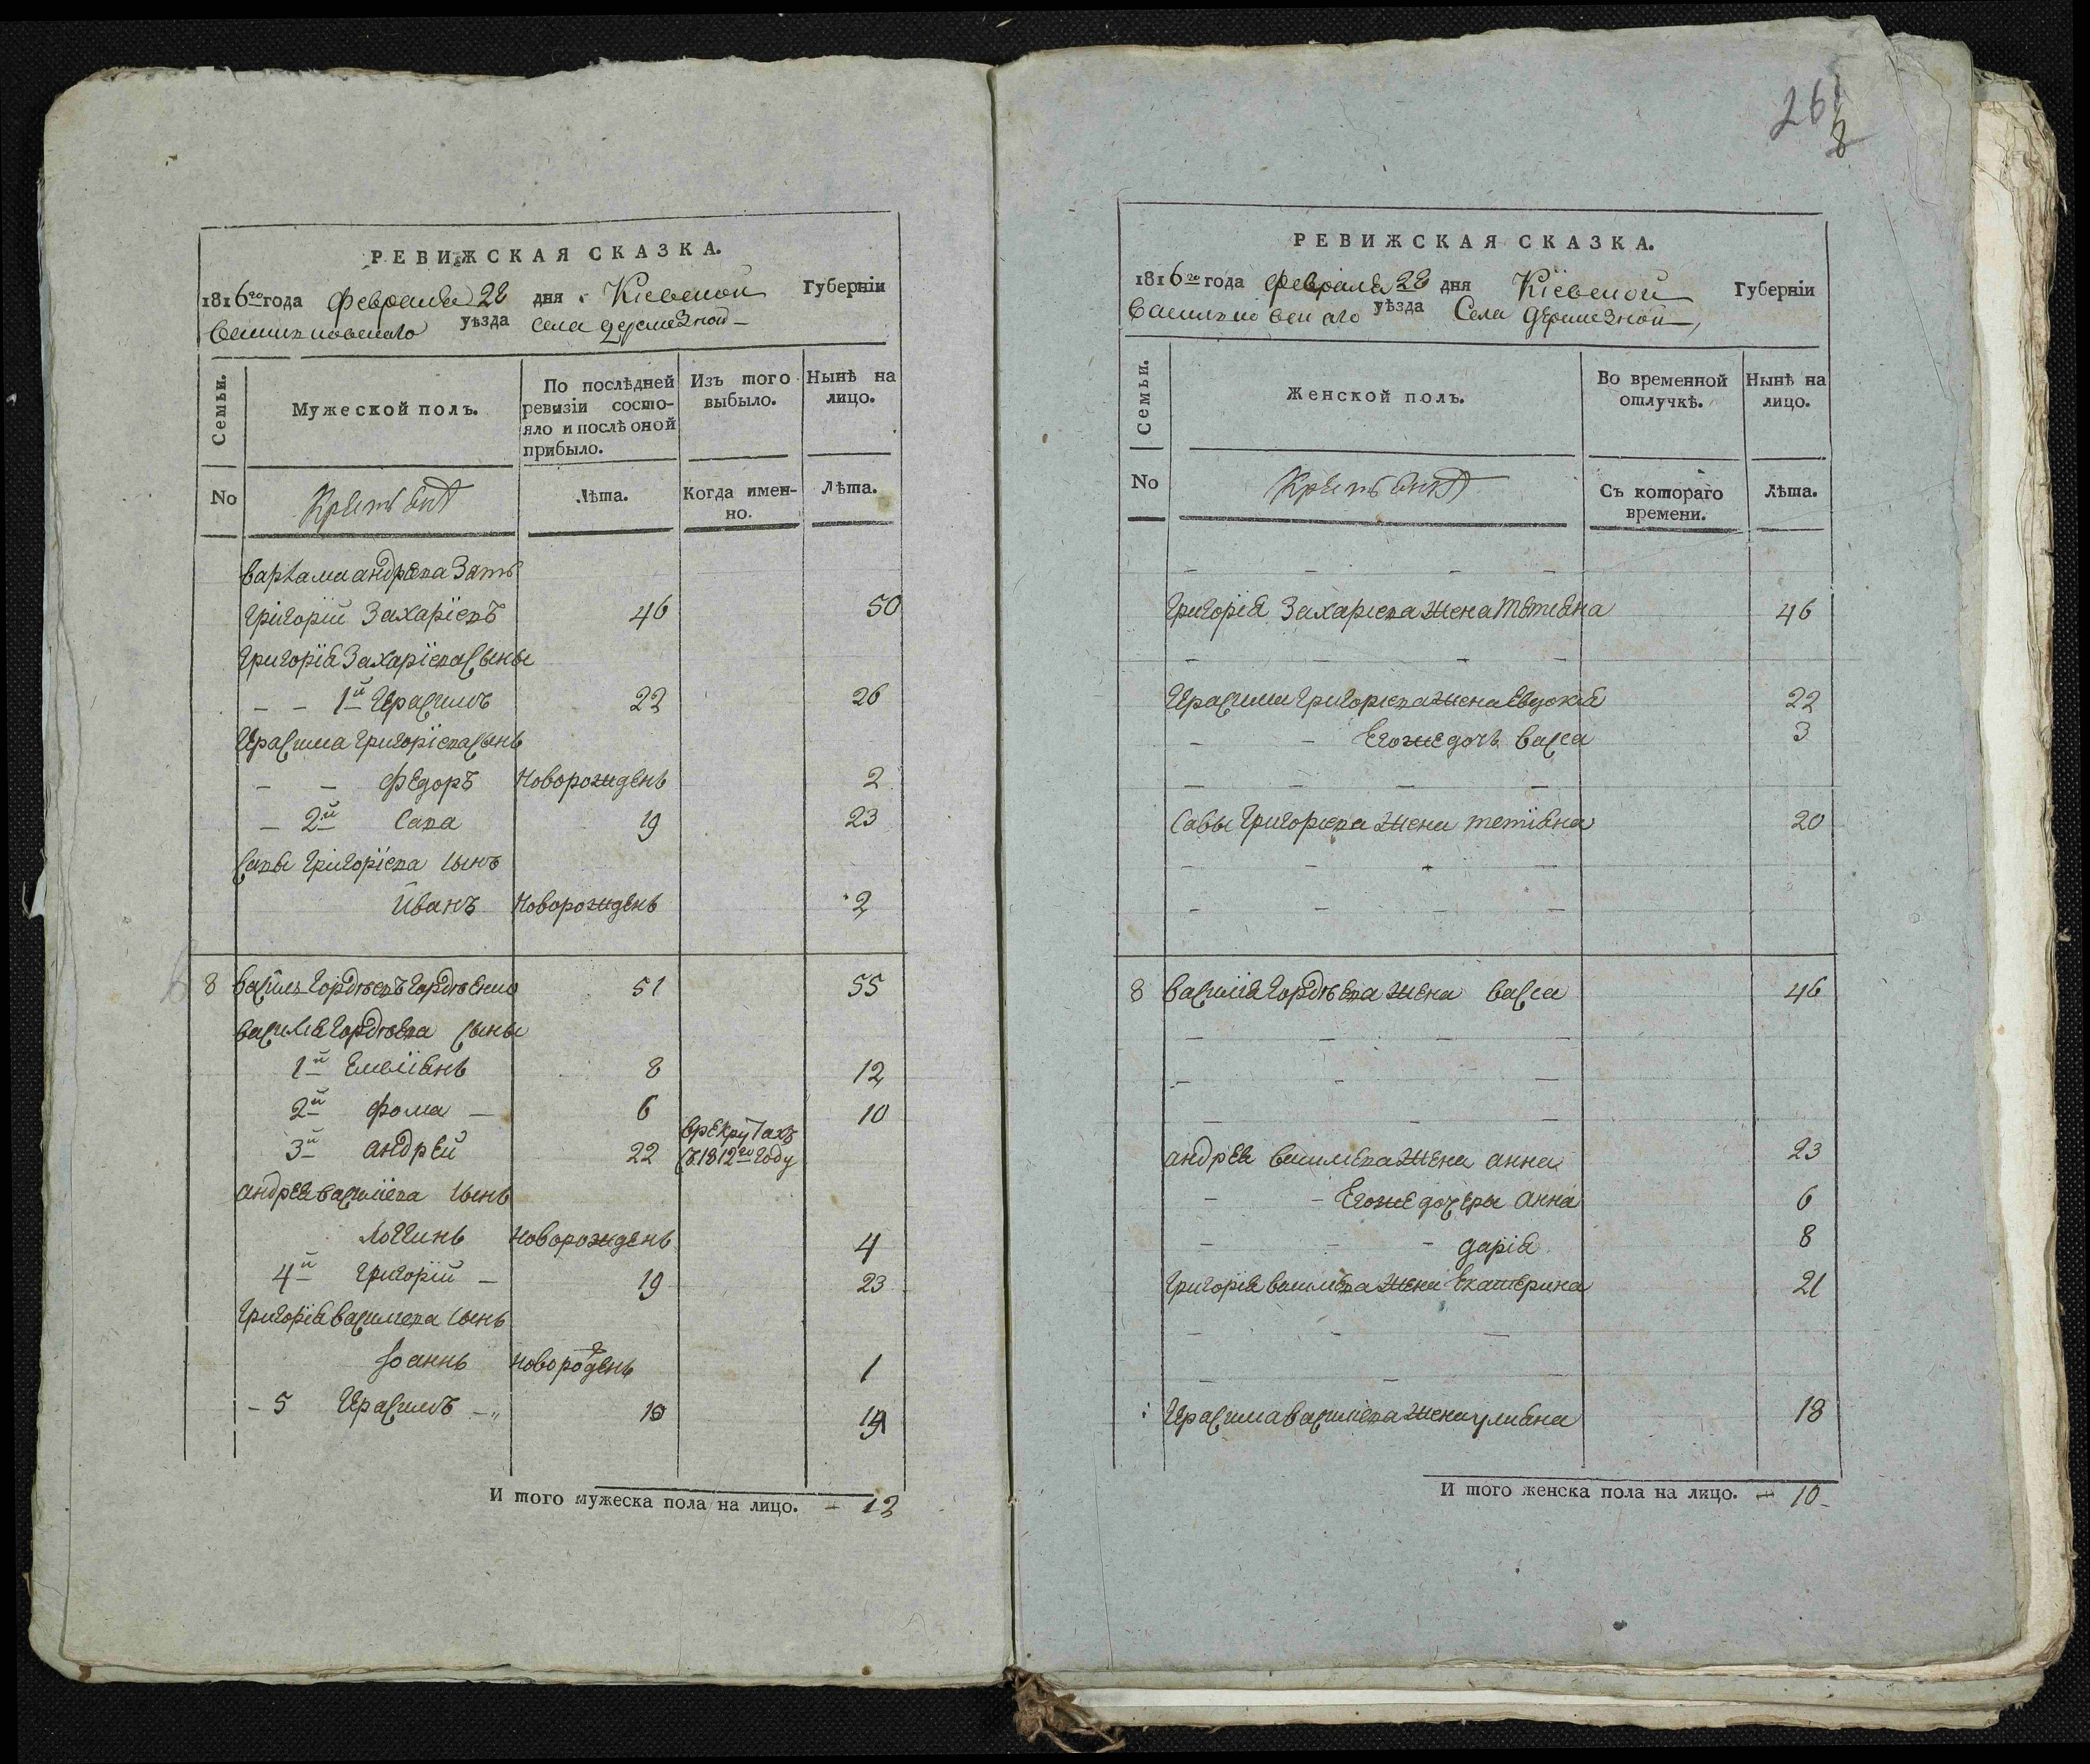 РЕВИЖСКАЯ СКАЗКА.
1816го года Февраля 28 дня Кіевской Губерніи
Василковскаго уѣзда Села
Семьи.
Мужеской полъ.
По послѣдней ревизіи состо-
яло и послѣ оной прибыло.
Изъ того выбыло.
Нынѣ на лицо.
No
Лѣта.
Когда имен-
но.
Лѣта.
андрева Зять
Григорій Захаріевъ 46 50
Григорія Захаріева Сыны
1й Герасимъ 22 26
Герасима Григоріева Сынъ
Федоръ Новорожденъ 2
2й Сава 19 23
Савы Григоріева Сынъ
Иванъ Новорожденъ 2
8 Василь Гордѣевъ Гордѣенко 51 55
Василія Гордѣева Сыны
1й Емеліянъ 8 12
2й Фома 6 10
3й андрей 22 врекрутахъ
С 1812го Году
андрея василіева Сынъ
Логгинъ Новорожденъ 4
4й Григорій 19 23
Григорія василіева Сынъ
Іоаннъ Новорожденъ 1
5 Герасимъ
И того мужеска пола на лицо. 12
261
8
РЕВИЖСКАЯ СКАЗКА.
1816го года Февраля 28 дня Кіевской Губерніи
Василковскаго уѣзда Села
Семьи.
Женской полъ.
Во временной отлучкѣ.
Нынѣ на лицо.
No
Съ котораго времени.
Лѣта.
Григорія Захаріева Жена Татіана 46
Герасима Григоріева Жена Евдокія 22
Егоже дочь Васса 3
Савы Григоріева Жена татіана 20
8 Василія Гордѣева Жена Васса 46
андрея василіева Жена анна 23
Егоже дочеры Анна 6
дарія 8
Григорія василіева Жена Екатерина 21
Герасима василіева Жена уліяна 18
И того женска пола на лицо. 10